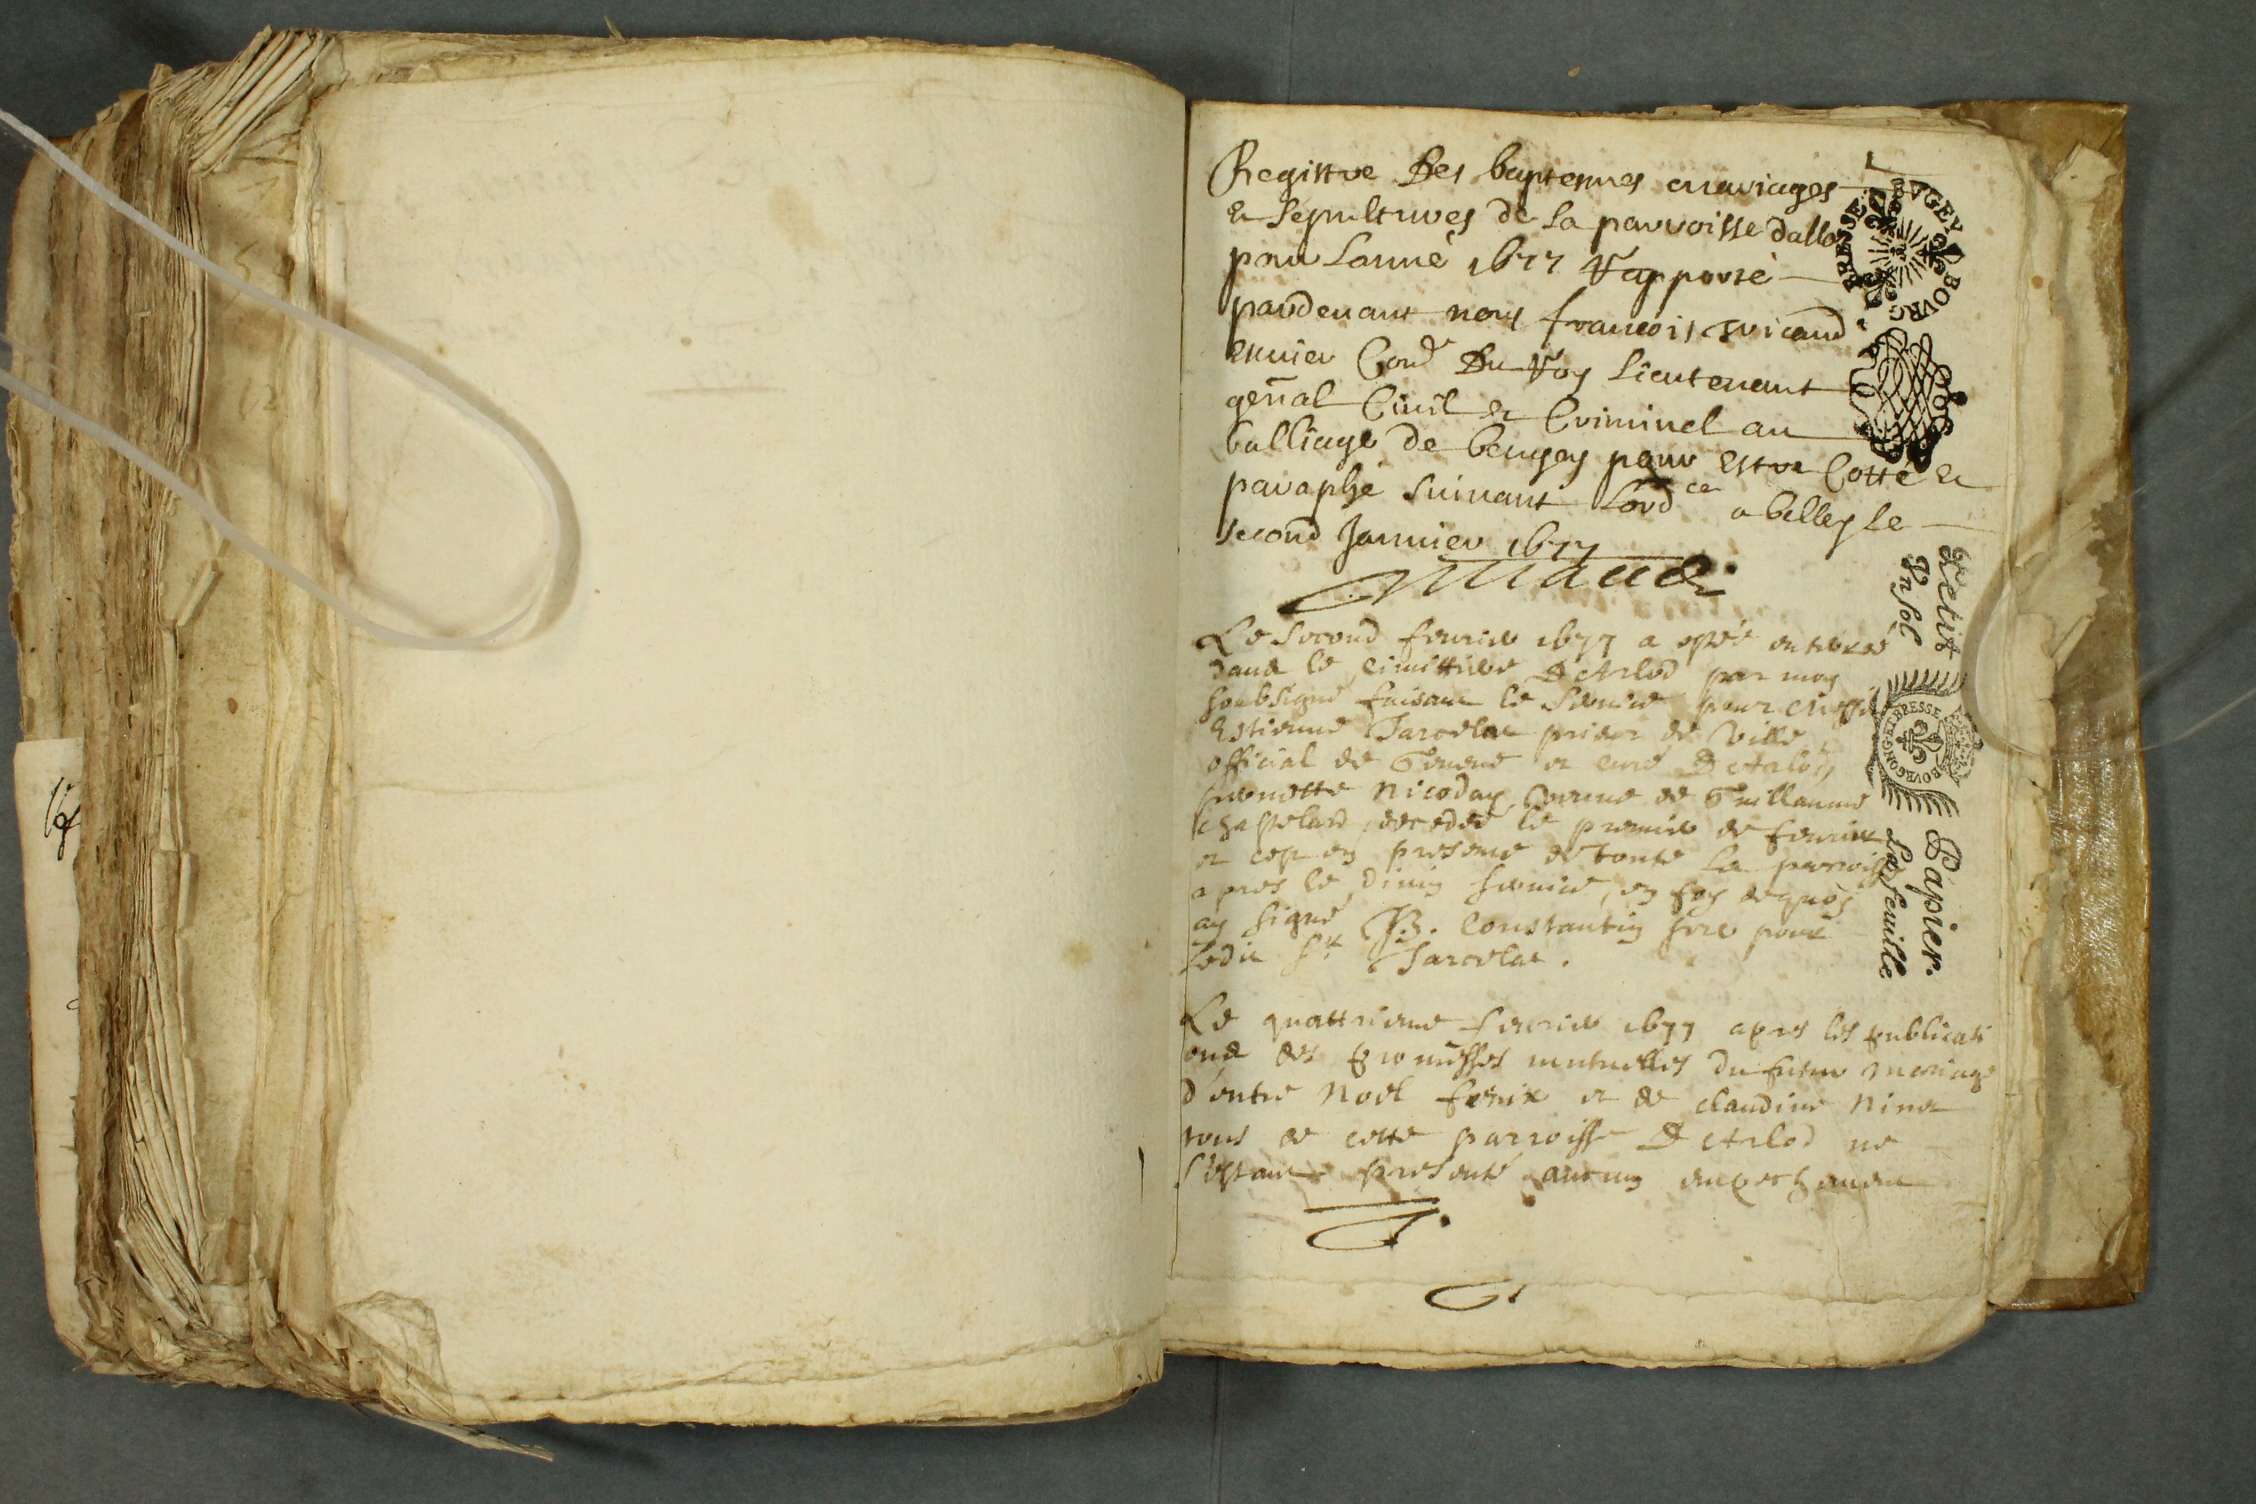 Registre des baptesmes mariages
et sepultures de la parroisse dallo
pour lanne 1677 rapporté
pardevant nous francois
escuier Con.er du Roy lieutenant
gen̄al Civil et Criminel au
balliage de beugey pour estre Cotté et
paraphé suivant lord.ce a belley le
second Janvier 1677
Le second fevrier 1677 a esté enterrée
dans le cimittiere D'Arlod par moy
soubsigné faisant le service pour Messire
Estienne Jarcelat prieur de Ville
official de Geneve et curé D'Arlod,
Nicoday veuve de Guillaume
Chastelard decedee le premier de fevrier
et ce en presence de toute la parroisse
apres le divin service, en foy de quoy
ay signé B. Constantin pour
ledit Sr Jarcelat.
Le quattrieme fevrier 1677 apres les publicati
ons des promesses mutuelles du futur mariage
d'entre Noel fenix et de claudine Ninet
tous de cette parroisse D'Arlod ne
s'estant presenté aucung empechement
BRESSE BVGEY BOVRG
Petit Papier.
Vn sol La feuille
BOVRGONGNE BRESSE